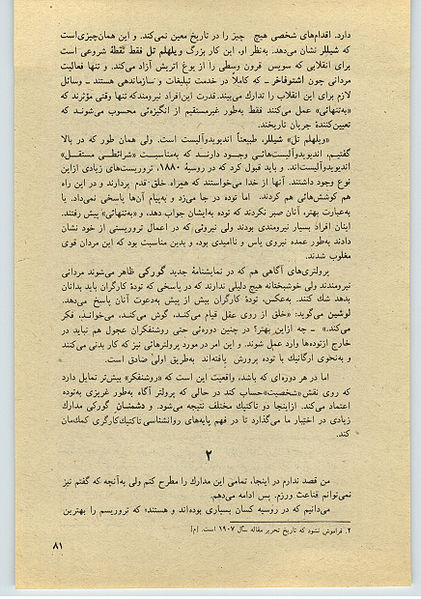 دارد. اقدام‌های شخصی هیچ چیز را در تاریخ معین نمی‌کند. و این همان‌چیزی‌است
که شیللر نشان می‌دهد. به‌نظر او، این کار بزرگ ویلهلم تل فقط نقطهٔ شروعی است
برای انقلابی که سویس قرون وسطی را از یوغ اتریش آزاد می‌کند. و تنها فعالیت
مردانی چون اشتوفاخر ـ که کاملاً در خدمت تبلیغات و سازماندهی هستند ـ وسائل
لازم برای این انقلاب را تدارک می‌بیند. قدرت این‌افراد نیرومندکه تنها وقتی مؤثرند که
«به‌تنهائی» عمل می‌کنند فقط به‌طور غیرمستقیم از انگیزه‌ئی محسوب می‌شوند که
تعیین‌کنندهٔ جریان تاریخند.
«ویلهلم تل» شیللر، طبیعتاً اندیویدوآلیست است. ولی همان طور که در بالا
گفتیم، اندیویدوآلیست‌هائی وجود دارند که به‌مناسبت «شرائطی مستقل»
اندیویدوآلیست‌اند. و باید قبول کرد که در روسیهٔ ۱۸۸۰، تروریست‌های زیادی ازاین
نوع وجود داشتند. آنها از خدا می‌خواستند که همراه خلق قدم بردارند و در این راه
هم کوشش‌هائی هم کردند. اما توده در جا می‌زد و به‌پیام آن‌ها پاسخی نمی‌داد. یا
به‌عبارت بهتر، آنان صبر نکردند که توده به‌ایشان جواب دهد، و «به‌تنهائی» پیش رفتند.
اینان افراد بسیار نیرومندی بودند ولی نیروئی که در اعمال تروریستی از خود نشان
دادند به‌طور عمده نیروی یاس و ناامیدی بود، و بدین مناسبت بود که این مردان قوی
مغلوب شدند.
پرولترهای آگاهی هم که در نمایشنامهٔ جدید گورکی ظاهر می‌شوند مردانی
نیرومندند ولی خوشبختانه هیچ دلیلی ندارند که در پاسخی که تودهٔ کارگران باید بدانان
بدهد شک کنند. به‌عکس، تودهٔ کارگران بیش از پیش به‌دعوت آنان پاسخ می‌دهد.
لوشین می‌گوید: «خلق از روی عقل قیام می‌کند، گوش می‌کند، می‌خواند، فکر
می‌کند.» ـ چه ازاین بهتر؟ در چنین دوره‌ئی حتی روشنفکران عجول هم نباید در
خارج ازتوده‌ها وارد عمل شوند. و این امر در مورد پرولترهائی نیز که کار یدی می‌کنند
و به‌نحوی ارگانیک با توده پرورش یافته‌اند به‌طریق اولیٰ صادق است.
اما در هر دوره‌ای که باشد، واقعیت این است که «روشنفکر» بیش‌تر تمایل دارد
که روی نقش «شخصیت»حساب کند در حالی که پرولتر آگاه به‌طور غریزی به‌توده
اعتماد می‌کند. ازاینجا دو تاکتیک مختلف نتیجه می‌شود. و دشمنان گورکی مدارک
زیادی در اختیار ما می‌گذارد تا در فهم پایه‌های روانشناسی تاکتیک‌کارگری کمک‌مان
کند.
۲
من قصد ندارم در اینجا، تمامی این مدارک را مطرح کنم ولی به‌آنچه که گفتم نیز
نمی‌توانم قناعت ورزم. پس ادامه می‌دهم.
می‌دانیم که در روسیه کسان بسیاری بوده‌اند و هستند که تروریسم را بهترین
۲. فراموش نشود که تاریخ تحریر مقاله سال ۱۹۰۷ است. [م]
۸۱